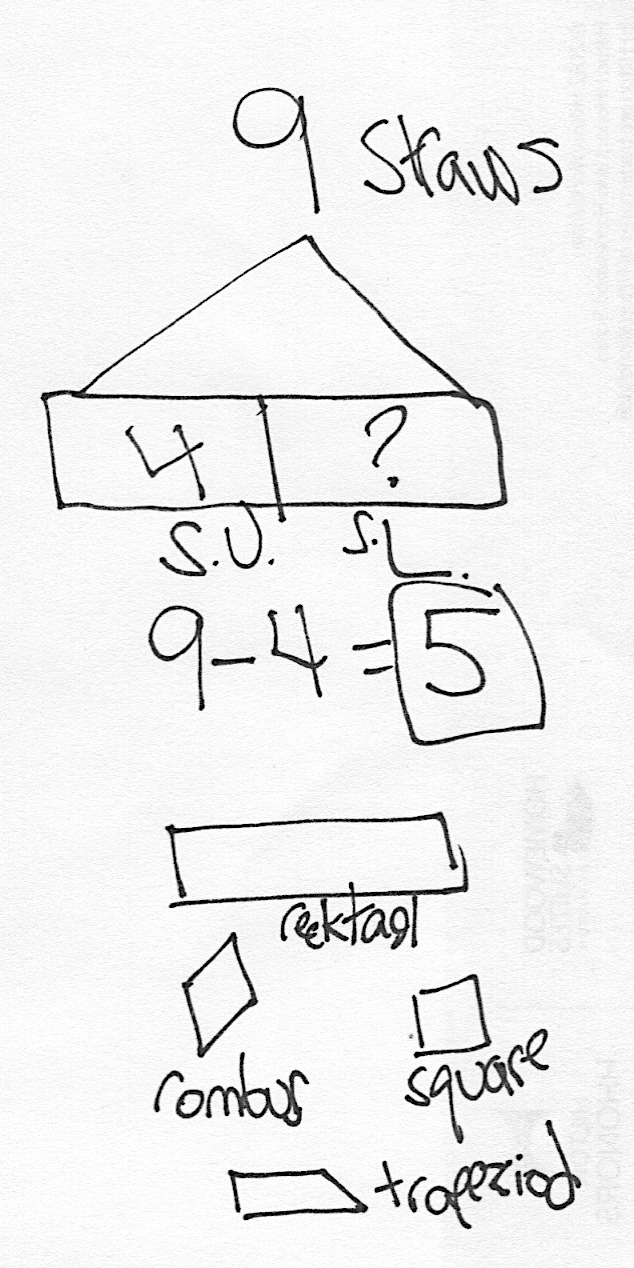 9 Straws
4 ?
S.U. S.L.
9-4=5
recktagl
rombus square
trapeziod